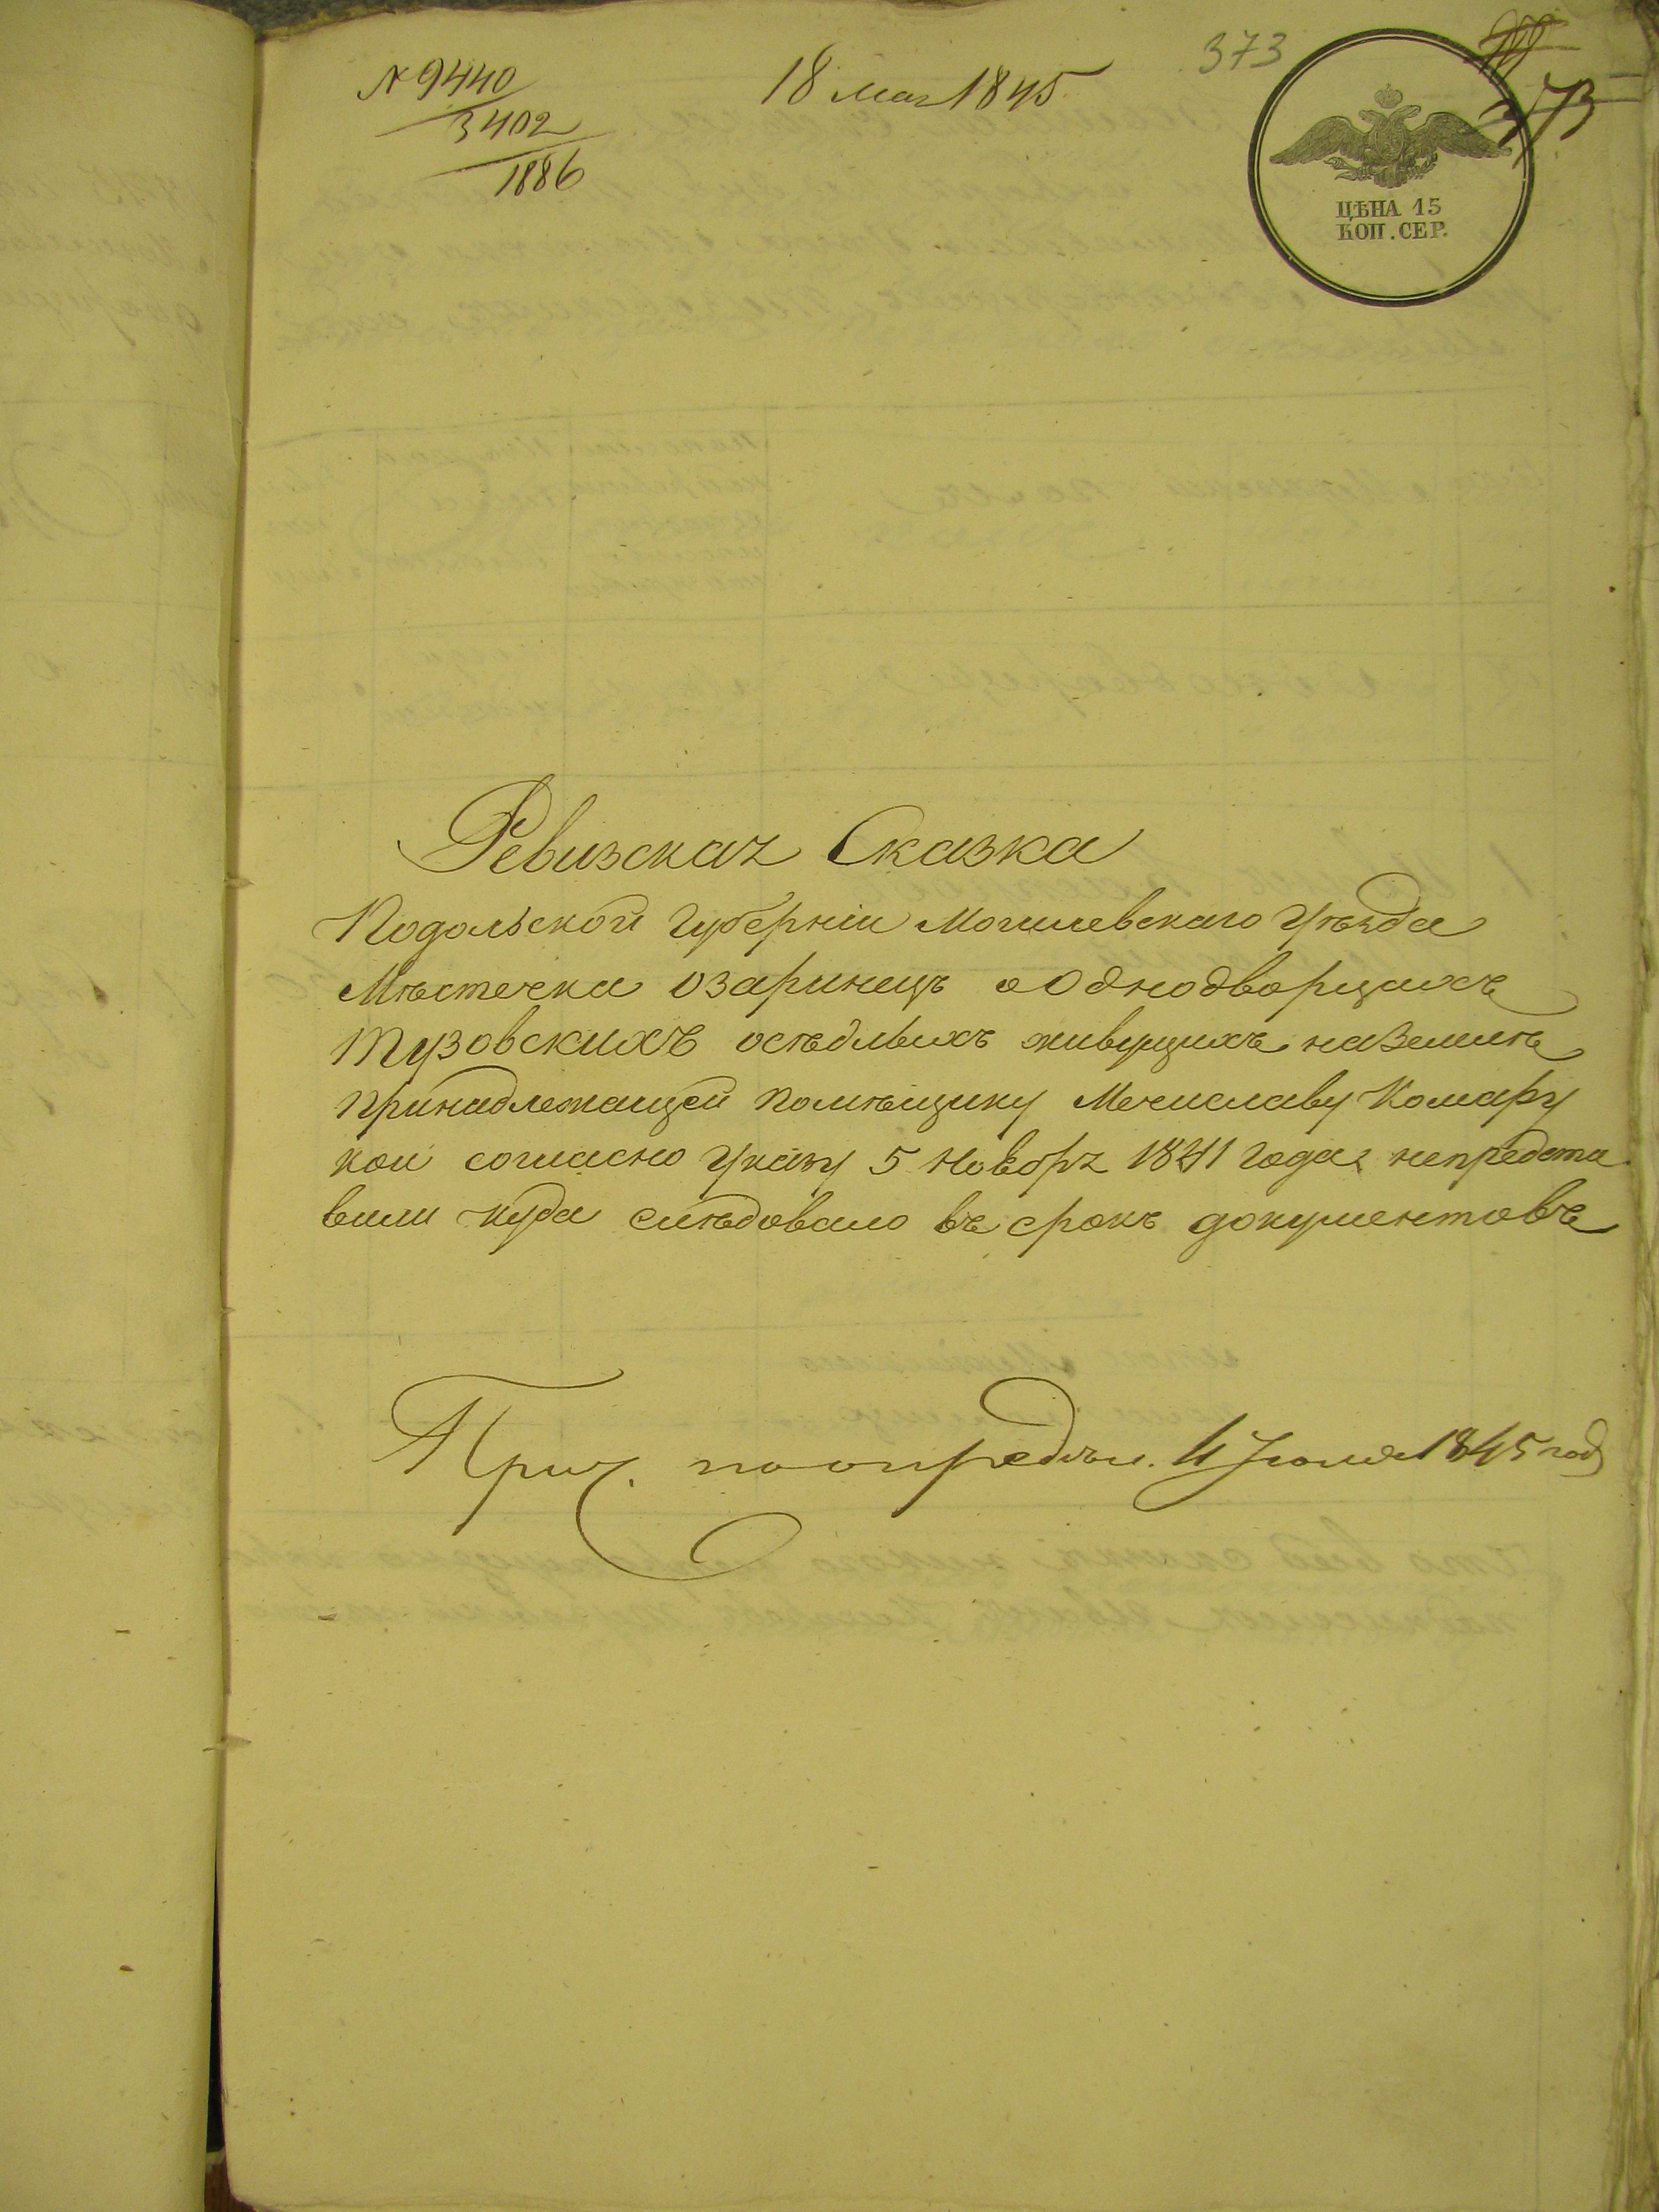 № 9440
3402
1886
18 мая 1845
373
373
ЦѢНА 15
КОП. СЕР.
Ревизская Сказка
Подольской Губерніи Могилевскаго Уѣзда
Мѣстечка Озаринецъ о Однодворцахъ
Тузовскихъ осѣдлыхъ живущихъ на Землѣ
принадлежащей помѣщику Мечиславу Комару
кои согласно Указу 5 Ноября 1841 Года непредста
вили куда слѣдовало въ срокъ документовъ
поопредѣл. 4 Іюля 1845 год